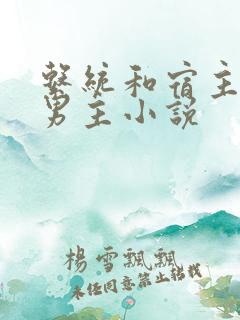 繫統和宿主
男主小説
楊雪飄飄
未经同意禁止转载